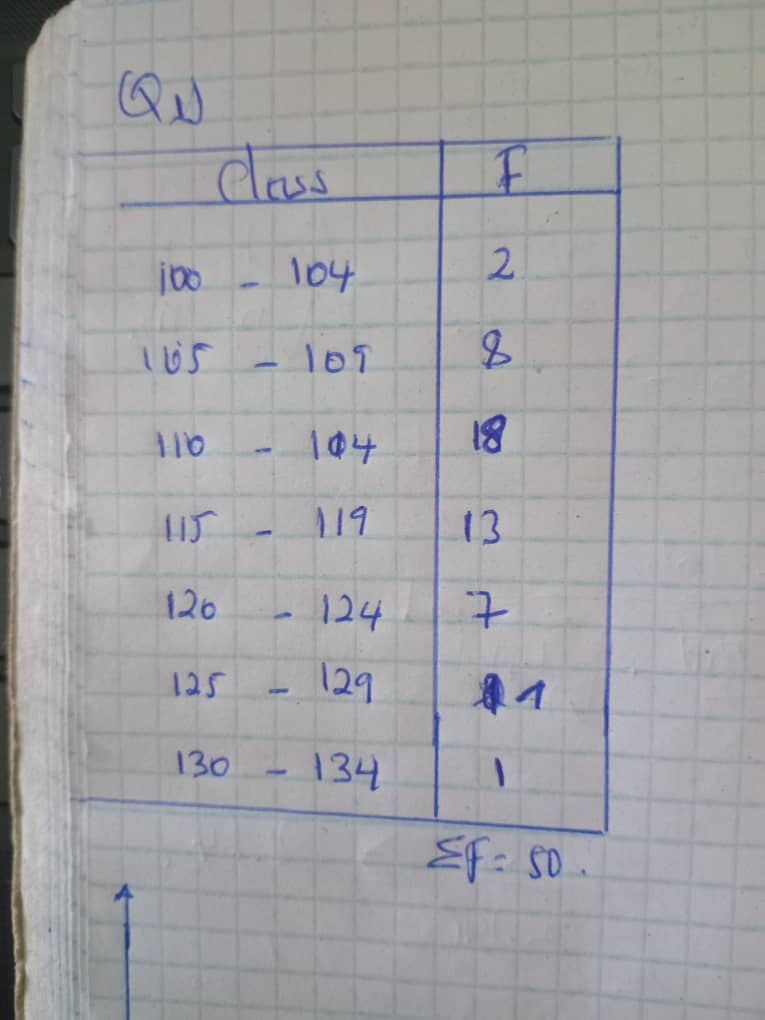 Q1)
Class F
100 - 104 2
105 - 109 8
110 - 104 18
115 - 119 13
120 - 124 7
125 - 129 1
130 - 134 1
ΣF = 50.